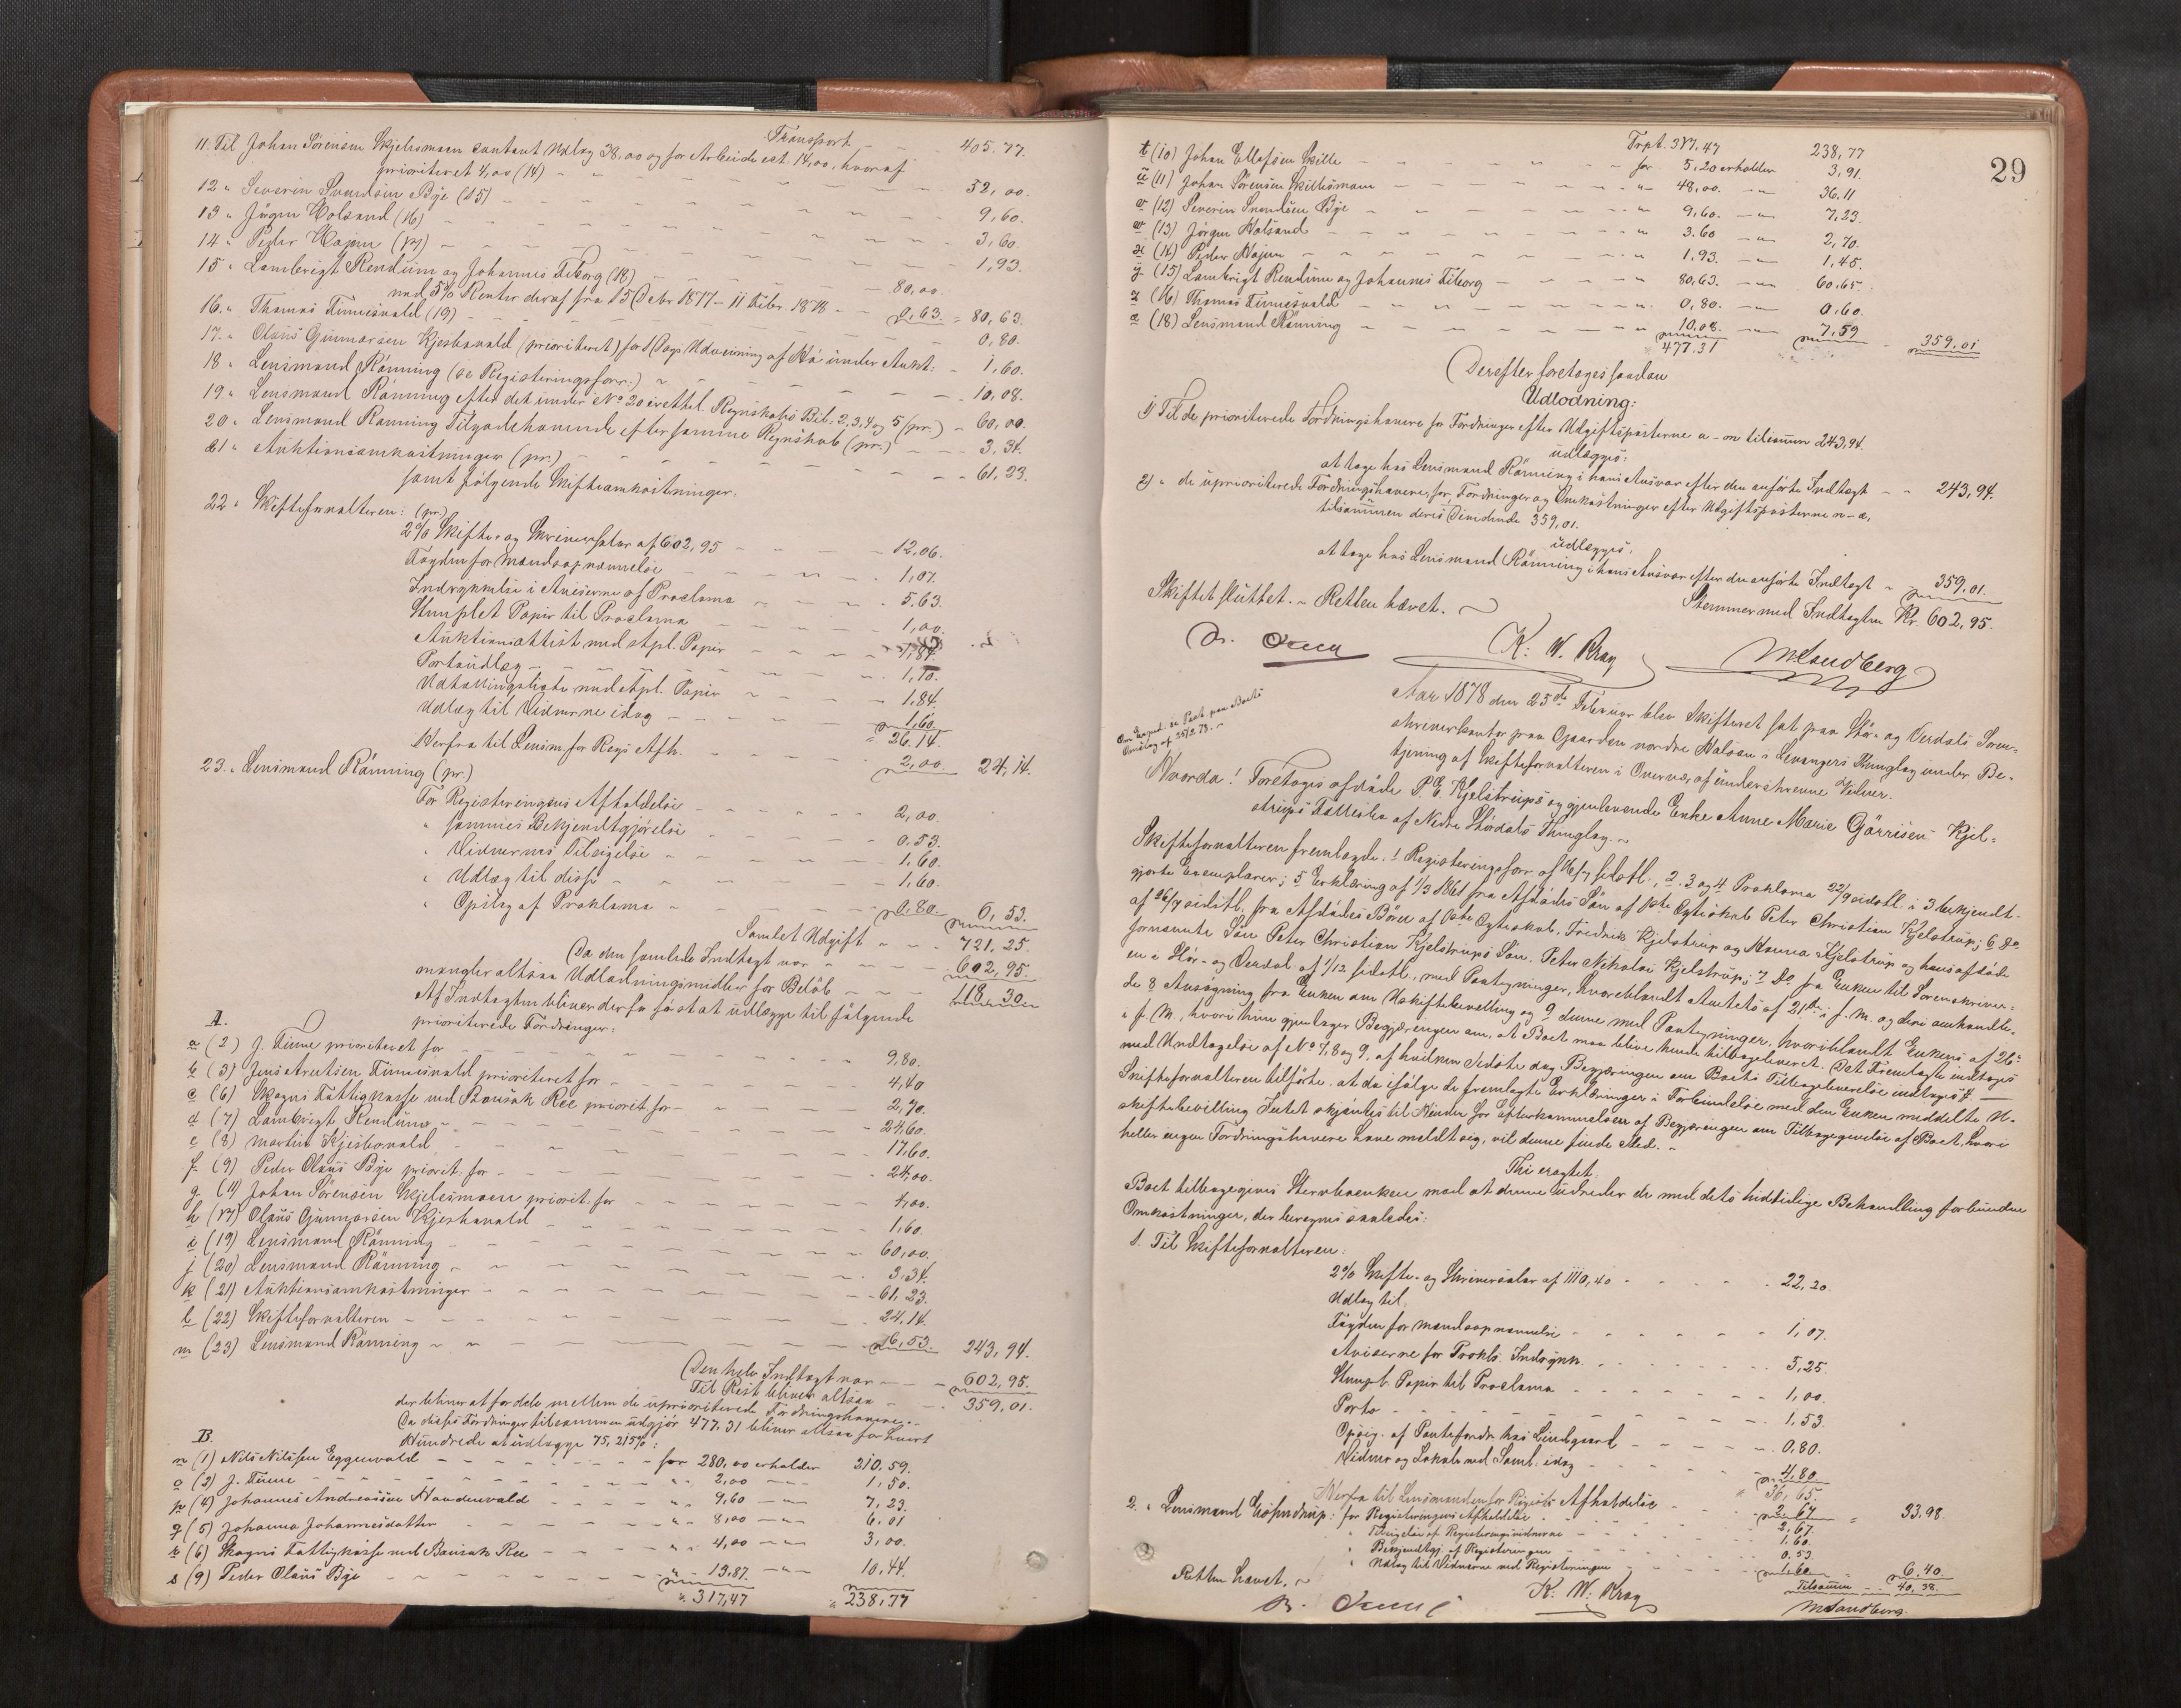 Transport - - 405.77.
11. Til Johan Sörensen Skjelsmoen contant Udlæg 38,00 og for Arbeide ect. 14,00, hvoraf
prioriteret 4,00 (14) - - - 52,00.
12 " Severin Svendsen Bye (15) - - - 9,60.
13 " Jörgen Holsand (16) - - - 3,60.
14 " Peder Hojem (17) - - - 1,93.
15 " Lambrigt Rendum og Johannes Tiborg (18) - - - 80,00.
med 5% Renter deraf fra 15 Decbr 1877 - 11 Febr. 1878 - - 0,63. = 80,63.
16. " Thomas Finnesvald (19) - - - 0,80.
17. " Olaus Gunnarsen Kjeshavald (prioriteret) for 1 Dags Udvisning af Hö under Aukt: - 1,60.
18 " Lensmand Rönning (se Registeringsforr.) - - - 10,08.
19 " Lensmand Rönning efter det under No 20 irettel. Regnskabs Bil: 2, 3, 4 og 5 (pr.) - 60,00.
20 " Lensmand Rönning Tilgodehavende efter samme Regnskab (pr.) - - 3,34.
21 " Auktionsomkostninger (pr.) - - - 61,23.
samt fölgende Skifteomkostninger:
22 " Skifteforvalteren: (pr.)
2% Skifte- og Skriversalær af 602,95 - - - 12,06.
Fogden for Mandsopnævnelse - - - 1,07.
Indrykkelse i Aviserne af Proclama - - - 5,63.
Stemplet Papir til Proclama - - - 1,00.
Auktionsattest med stpl. Papir - - - 1,84.
Portoudlæg - - - 1,10.
Udlodningsliste med stpl. Papir - - - 1,84.
Udlæg til Vidnerne idag - - - 1,60.
" 26.14.
Herfra til Lensm. for Regs Afh. - - - 2,00. 24,14.
23. " Lensmand Rönning (pr.)
For Registeringens Afholdelse - - - 2,00.
" sammes Bekjendtgjörelse - - - 0.53.
" Vidnernes Tilsigelse - - - 1,60.
" Udlæg til disse - - - 1,60.
" Opslag af Proklama - - - 0,80. 6,53.
Samlet Udgift - - - 721,25.
Da den samlede Indtægt var - - - 602,95.
mangler altsaa Udlodningsmidler for Belöb - - - 118,30.
Af Indtægten bliver derfor först at udlægge til fölgende
prioriterede Fordringer:
A.
a (2) J. Finne prioriteret for - - - 9,80.
b (3) Jens Arntsen Finnesvald prioriteret for - - - 4,40
c (6) Skogns Fattigkasse ved Ree priorit. for - - - 2,70.
d (7) Lambrigt Rendum - - - 24,60.
e (8) Martin Kjeshavald - - - 17,60.
f. (9) Peder Olaus Bye priorit. for - - - 24,00.
g. (11) Johan Sörensen Skjelsmoen priorit. for - - - 4,00.
h (17) Olaus Gunnarsen Kjeshavald - - - 1,60.
i (19) Lensmand Rönning - - - 60,00.
j (20) Lensmand Rönning - - - 3,34.
k (21) Auktionsomkostninger - - - 61,23.
l (22) Skifteforvalteren - - - 24,14.
m (23) Lensmand Rönning - - - 6,53. 243,94.
Den hele Indtægt var - - - 602,95.
Til Rest bliver altsaa - - - 359,01.
der bliver at fordele mellem de uprioriterede Fordringshavere.
Da disses Fordringer tilsammen udgjör 477,31 bliver altsaa for hvert
Hundrede at udlægge 75,215%:
B.
n (1) Nils Nilssen Eggenvald - - - for 280,00 erholder 210,59.
o (2) J. Finne - - - " 2,00 - " - 1,50.
p (4) Johannes Andreassen - - - " 9,60 - " - 7,23.
q (5) Johanna Johannesdatter - - - " 8,00 - " - 6.01
r (6) Skogns Fattigkasse ved Ree - - - " 4,00 - " - 3,00.
s (9) Peder Olaus Bye - - - " 13,87. - " - 10.44.
" 317,47 " 238,77
29
Trpt. 317,47 238,77
t (10) Johan Ellefsen Skille - - - for 5,20 erholder 3,91.
u (11) Johan Sörensen Skillesmoen - - - " 48,00. - " - 36.11
v (12) Severin Svendsen Bye - - - " 9,60. - " - 7,23.
w (13) Jörgen Holsand - - - " 3.60 - " - 2,70.
x (14) Peder Hojem - - - " 1,93. - " - 1,45.
y (15) Lambrigt Rendum og Johannes Tiborg - - - 80,63. - " - 60,65.
z (16) Thomas Finnesvald - - - " 0,80. - " - 0,60.
æ (18) Lensmand Rönning - - - " 10,08. - " - 7,59 359,01
477.31
Derefter foretoges saadan
Udlodning:
1) Til de prioriterede Fordringshavere for Fordringer efter Udgiftsposterne a - m tilsammen 243,94.
udlægges:
at tage hos Lensmand Rönning i hans Ansvar efter den anförte Indtægt - - 243,94.
2) " de uprioriterede Fordringshavere, for Fordringer og Omkostninger efter Udgiftsposterne n - æ,
tilsammen deres Dividende 359,01.
udlægges:
at tage hos Lensmand Rönning i hans Ansvar efter den anförte Indtægt - 359,01.
Stemmer med Indtægten Kr. 602,95.
Skiftet sluttet. - Retten hævet. -
K. W. Kray M. Sandberg
Aar 1878 den 25de Februar blev Skifteret sat paa Stör- og Værdals Soren-
skriverkontor paa Gaarden nordre Halsan i Levangers Thinglag under Be-
tjening af Skifteforvalteren i Overvær af underskrevne Vidner.
Hvorda! Foretoges afdöde P. E. Kjelstrups og gjenlevende Enke Anne Marie Görrisen Kjel-
strups Fællesbo af Nedre Stördals Thinglag. -
Skifteforvalteren fremlagde: 1 Registeringsforr. af 16/7 sidstl., 2, 3 og 4 Proklama 22/9 sidstl. i 3 bekjendt-
gjorte Exemplarer; 5 Erklæring af 1/3 1861 fra Afdödes Sön af 1ste Egteskab Peter Christian Kjelstrup; 6 Do
af 26/7 sidstl. fra Afdödes Börn af Egteskab, Fredrik Kjelstrup og Hanna Kjelstrup og hans afdöde
fornævnte Sön Peter Christian Kjelstrups Sön, Peter Nikolai Kjelstrup; 7 Do. fra Enken til Sorenskriver-
en i Stör- og Værdal af 1/12 sidstl., med Paategninger, hvoreblandt Amtets af 21de i f. M. og den omhandle-
de 8 Ansögning fra Enken om Uskiftebevilling og 9 denne med Paategninger, hvoriblandt Enkens af 26de
i f. M., hvori hun gjentager Begjæringen om, at Boet maa blive hende tilbageleveret. Det Fremlagte indtages
med Undtagelse af No 7, 8 og 9, af hvilken sidste dog Begjæringen om Boets Tilbageleverelse indtages. -
Skifteforvalteren tilförte: at da ifölge de fremlagte Erklæringer i Forbindelse med den Enken meddelte U-
skiftebevilling Intet skjönnes til Hinder for Efterkommelsen af Begjæringen om Tilbagegivelse af Boet, hvori
heller ingen Fordringshavere have meldt sig, vil denne finde Sted. -
Thi eragtet:
Boet tilbagegives Stervboenken mod at denne udreder de med dets hidtidige Behandling forbundne
Omkostninger, der beregnes saaledes:
1. Til Skifteforvalteren:
2% Skifte- og Skriversalær af 1110,40 - - - 22,20.
Udlæg til:
Fogden for Mandsopnævnelse - - - 1,07.
Aviserne for Prokls. Indrykn. - - - 5,25.
Stempl. Papir til Proclama - - - 1,00.
Porto - - - 1,53.
Opsig. af Pantefordr. hos Lindgaard - - - 0,80.
Vidner og Lokale ved Saml. idag - - - 4,80.
36,65.
Herfra til Lensmanden for Regists Afholdelse - - - 2,67 = 33,98.
2. " Lensmand : for Registeringens Afholdelse - - - 2,67.
" Tilsigelse af Registeringsvidnerne - - - 1,60.
" Bekjendtgj. af Registeringen - - - 0.53
" Udlæg til Vidnerne ved Registeringen - - - 1,60 6,40
Tilsammen - - 40,38.
Retten hævet. -
K. W. Kray
M. Sandberg.